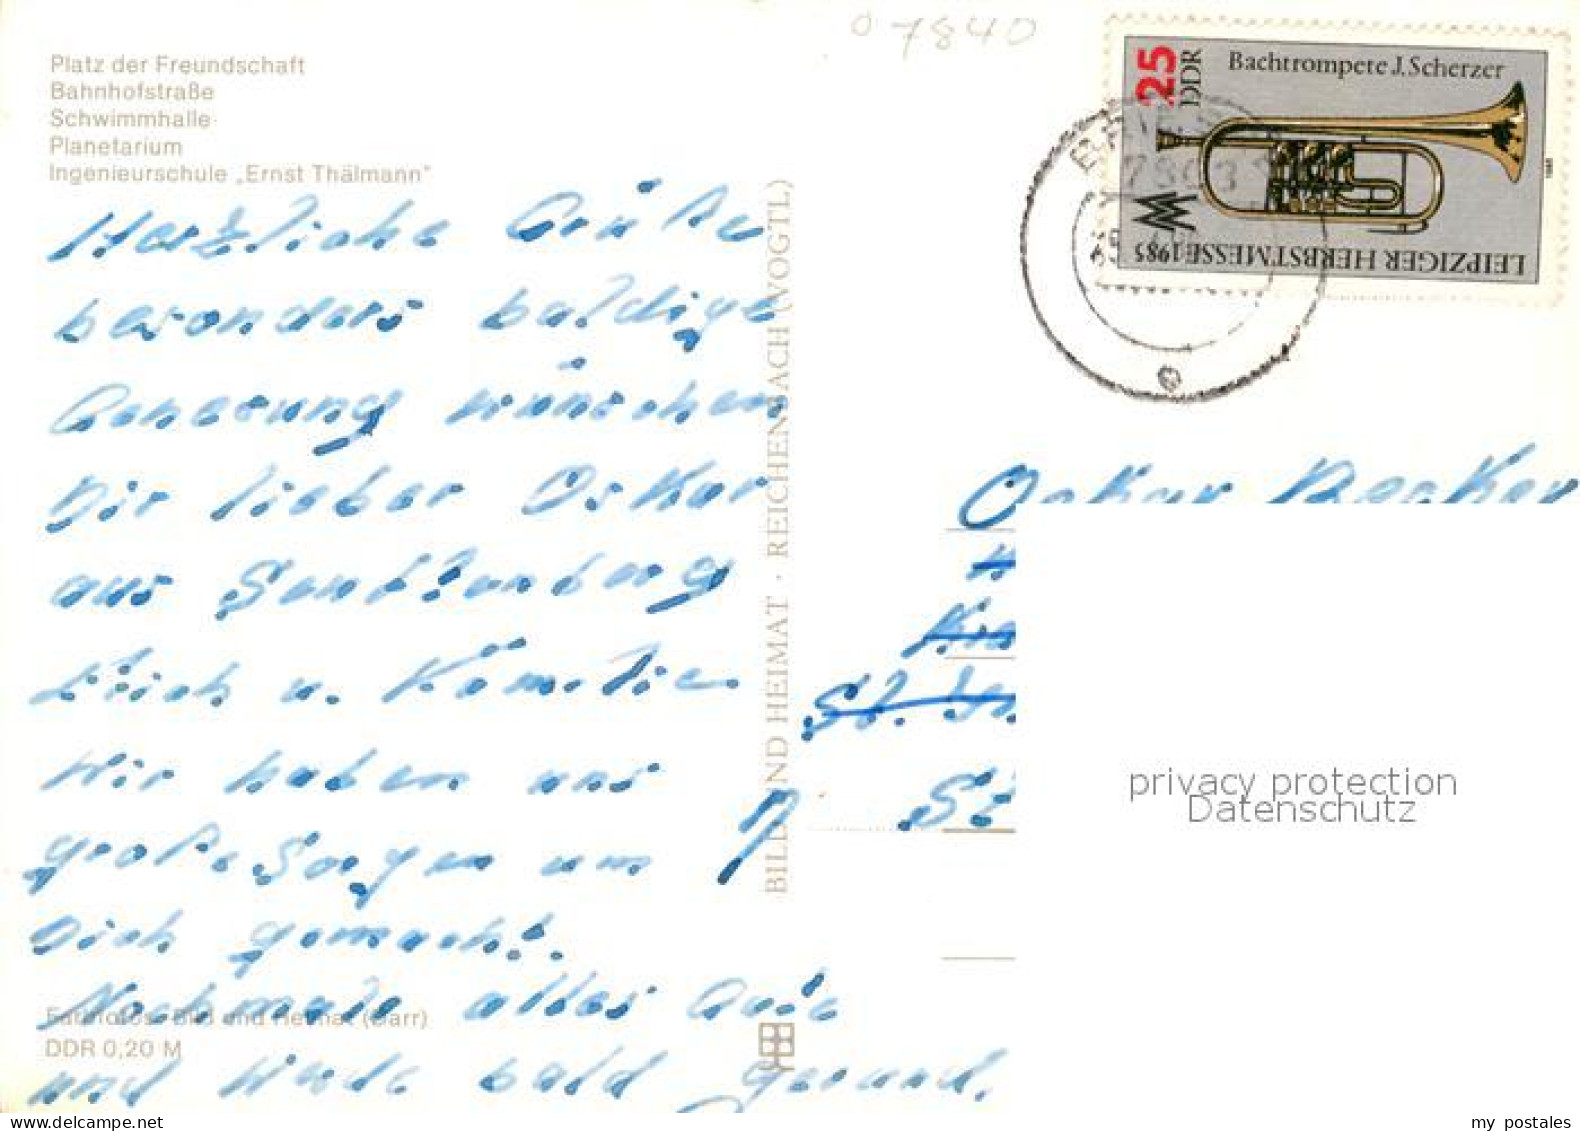 07840
Platz der Freundschaft
Bahnhofstraße
Schwimmhalle
Planetarium
Ingenieurschule „Ernst Thälmann"
25
DDR
Bachtrompete J. Scherzer
LEIPZIGER HERBSTMESSE 1985
Herzliche Grüße
besonders baldige
Genesung wünschen
Dir lieber Oskar
aus Senftenberg
Erich u. Familie
Wir haben uns
große Sorgen um
Dich gemacht.
Nochmals alles Gute
und werde bald gesund.
Oskar Becker
St.
BILD UND HEIMAT · REICHENBACH (VOGTL)
privacy protection
Datenschutz
Farbfotos: Bild und Heimat (Darr)
DDR 0,20 M
my postales